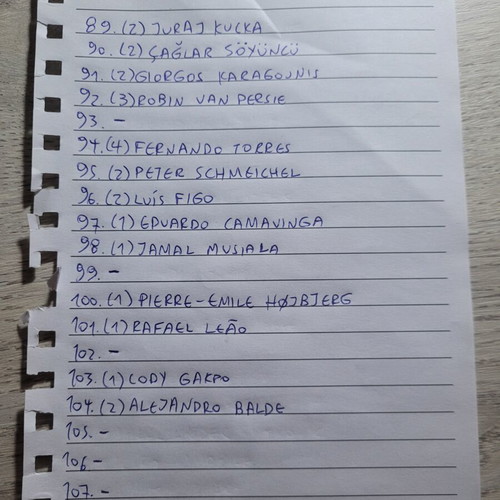 89. (2) JURAJ KUCKA
90. (2) ÇAĞLAR SÖYÜNCÜ
91. (2) GIORGOS KARAGOUNIS
92. (3) ROBIN VAN PERSIE
93. -
94. (4) FERNANDO TORRES
95. (2) PETER SCHMEICHEL
96. (2) LUÍS FIGO
97. (1) EDUARDO CAMAVINGA
98. (1) JAMAL MUSIALA
99. -
100. (1) PIERRE-EMILE HØJBJERG
101. (1) RAFAEL LEÃO
102. -
103. (1) CODY GAKPO
104. (2) ALEJANDRO BALDE
105. -
106 -
107. -